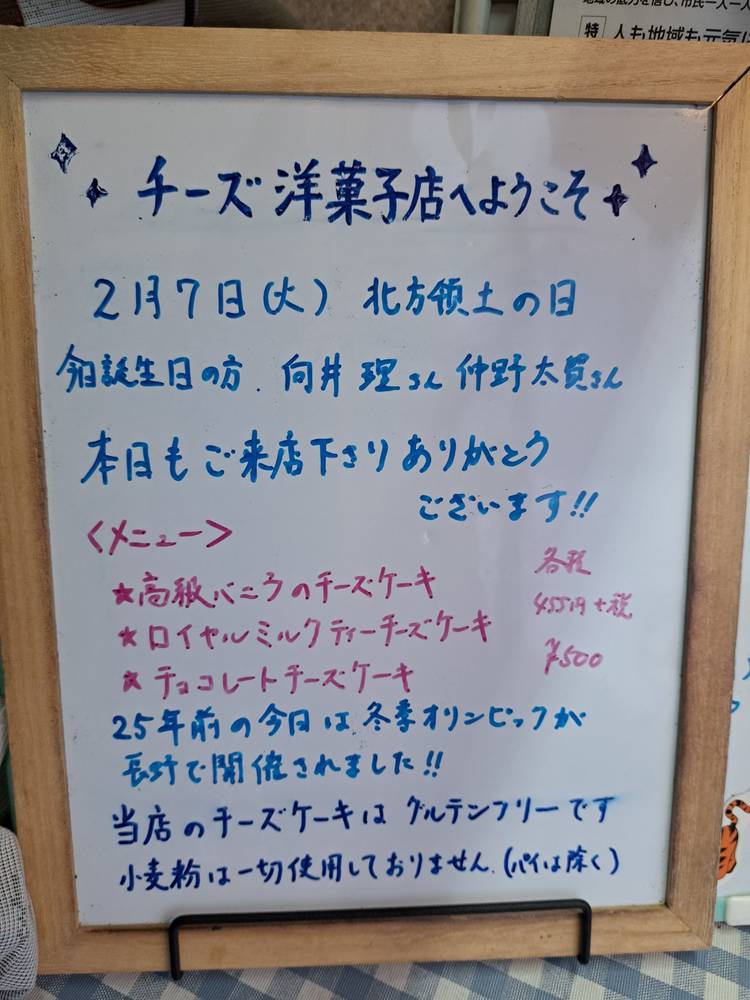 地域の底力を信じ、市民一人一人
特 人も地域も元気に
チーズ洋菓子店へようこそ
2月7日(火) 北方領土の日
今日誕生日の方. 向井 理さん 仲野太賀さん
本日もご来店下さりありがとう
ございます!!
<メニュー>
★高級バニラのチーズケーキ
★ロイヤルミルクティーチーズケーキ
★チョコレートチーズケーキ
各種
455円+税
¥500
25年前の今日は冬季オリンピックが
長野で開催されました!!
当店のチーズケーキは グルテンフリーです
小麦粉は一切使用しておりません.(パイは除く)